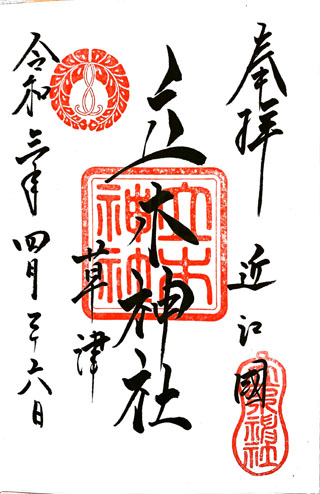 奉拝
近江國
立木神社
草津
令和三年四月二十六日
立木神社